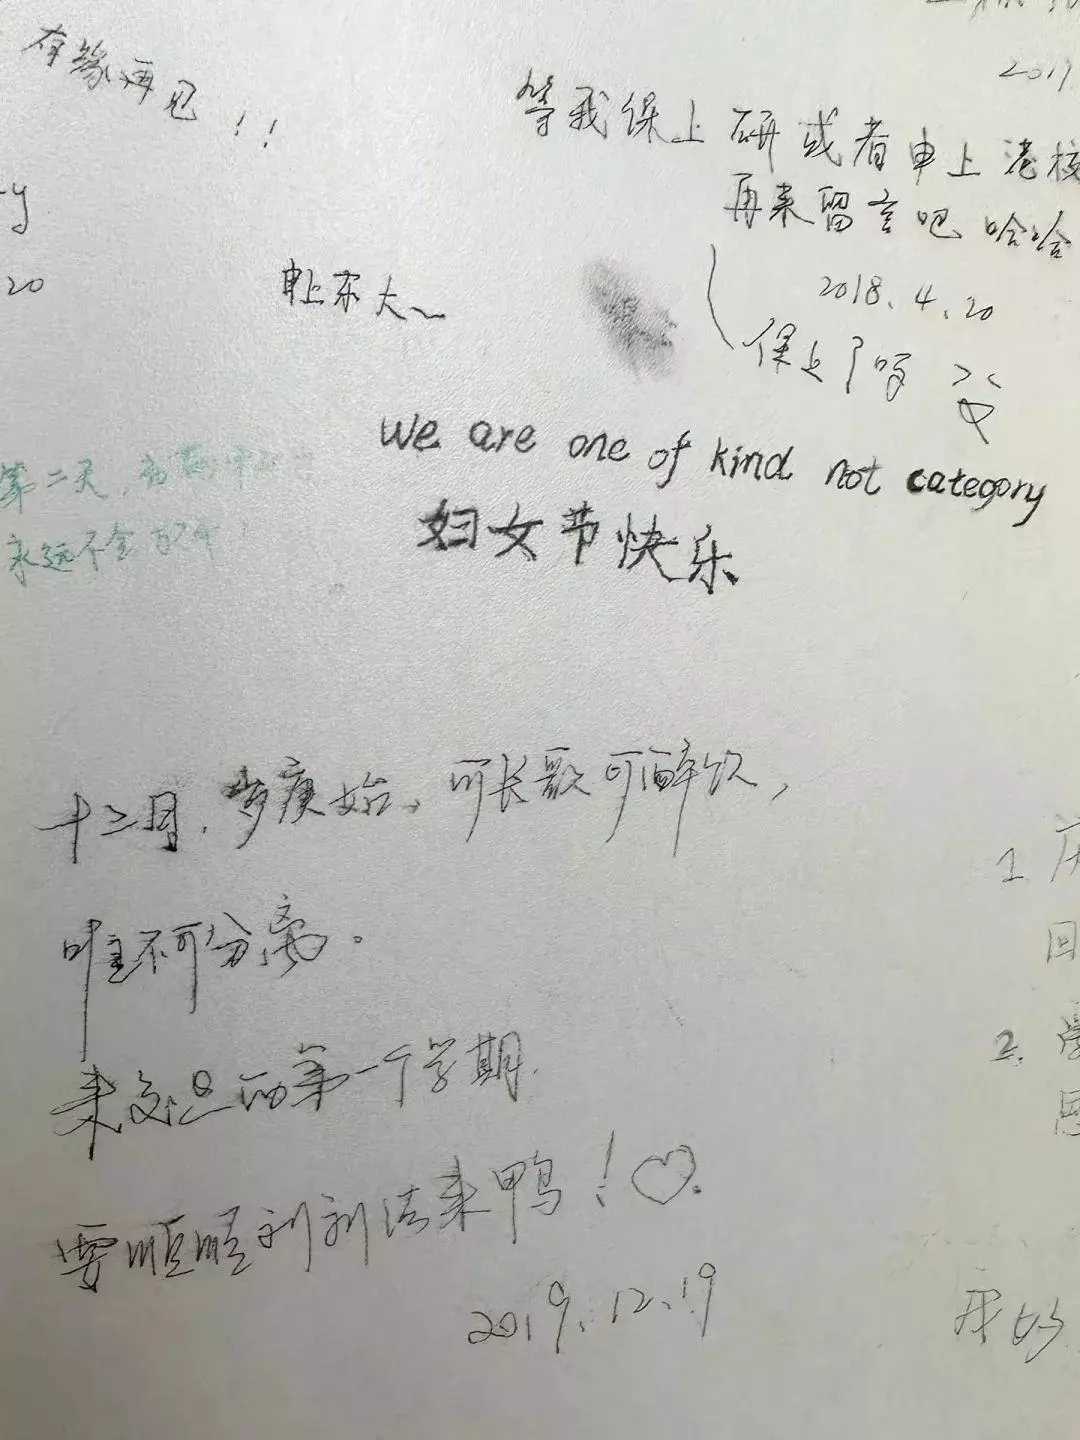 有缘再见!!
2019.
等我保上研或者申上港校
再来留言吧 哈哈
2018.4.20
保上了吗
y
20
申上东大~
we are one of kind not category
妇女节快乐
第二天,
永远不会
十二月,岁庚始。可长歌可醉饮,
唯不可分离。
来交只的第一个学期.
要顺顺利利结束鸭!♡.
2019.12.19
1.
回
2.